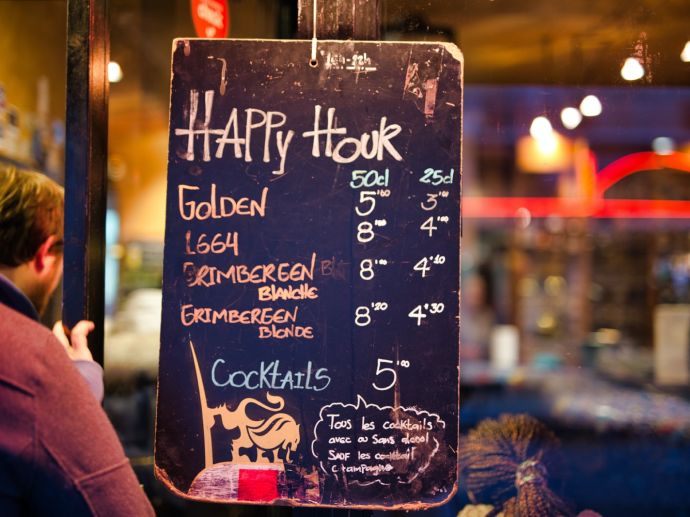 HAPPY HOUR
50cl 25cl
GOLDEN 5'00 3'00
1664 8'00 4'00
GRIMBERGEN 8'00 4'10
BLANCHE
GRIMBERGEN 8'20 4'30
BLONDE
COCKTAILS 5'00
Tous les cocktails
avec ou sans alcool
SAUF les cocktail
champagne